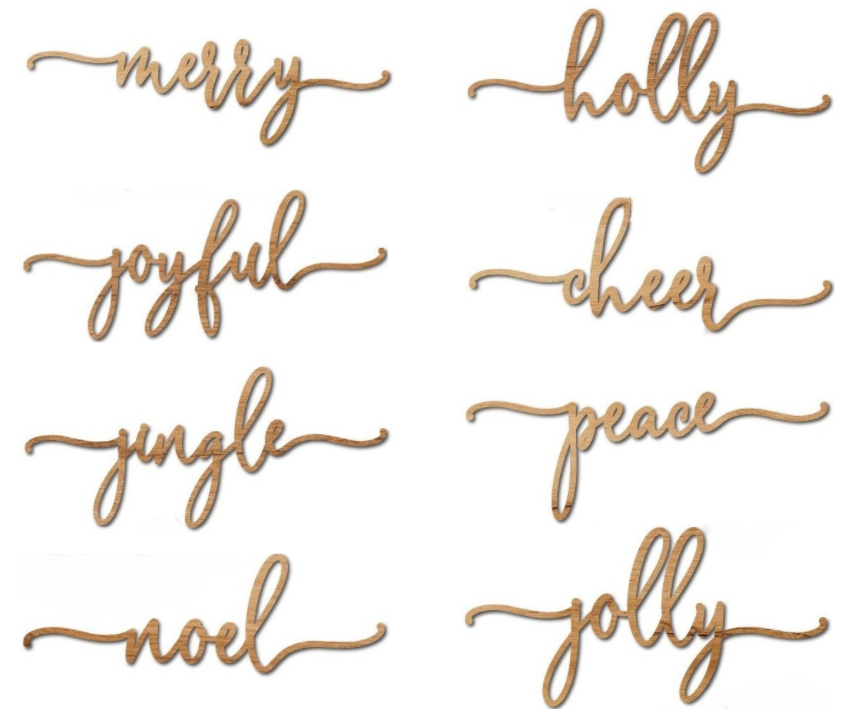 merry
holly
joyful
cheer
jingle
peace
noel
jolly